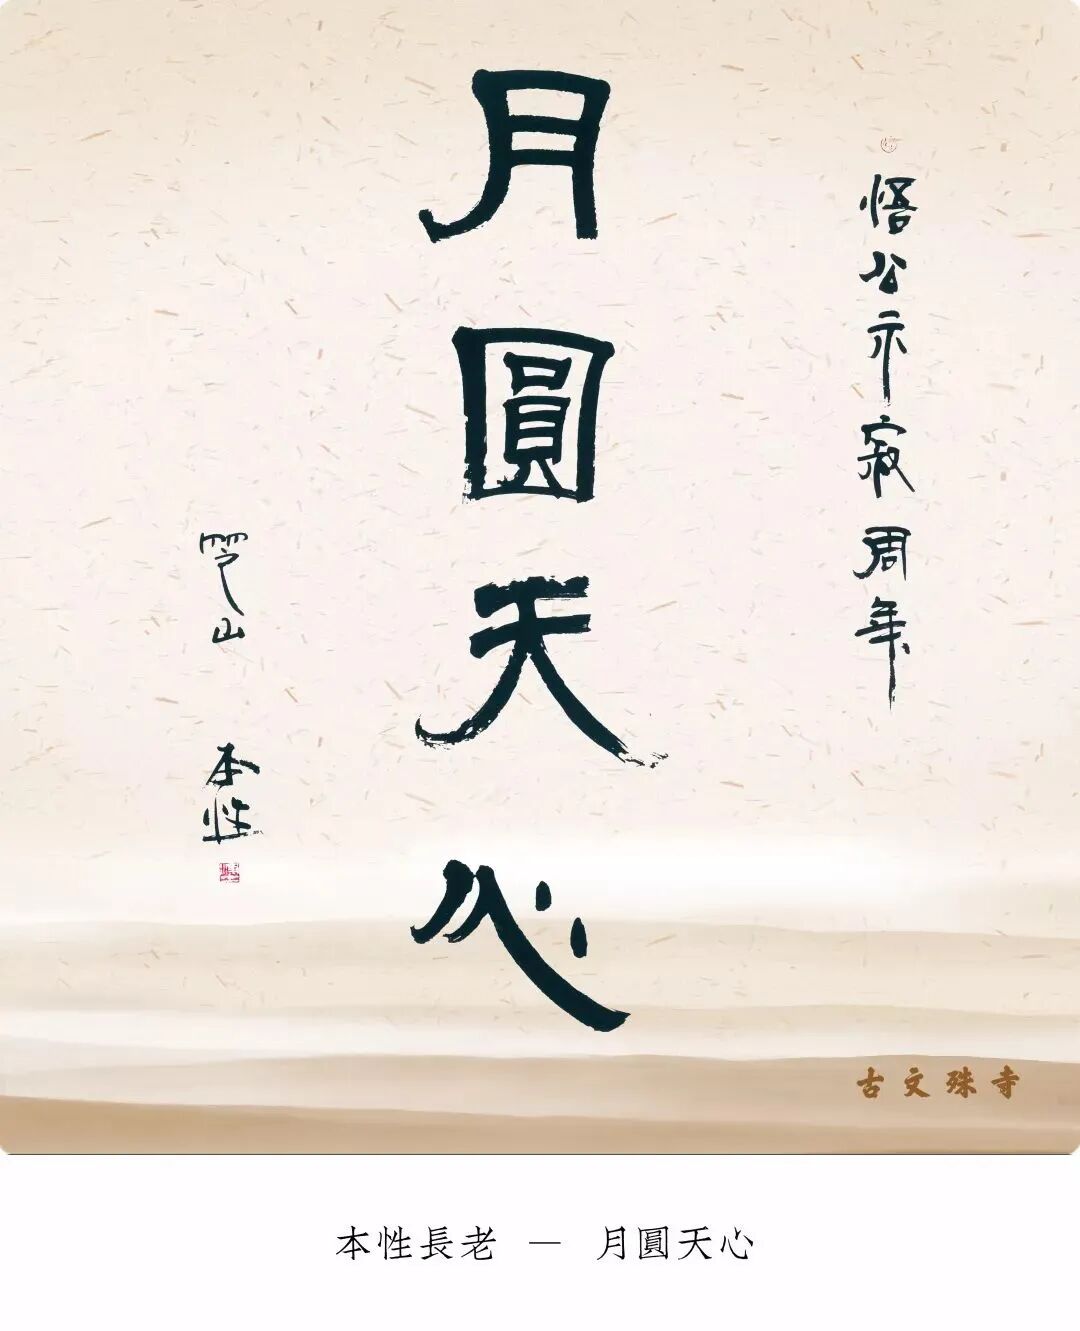 悟公示寂周年
月圓天心
芝山 本性
古文殊寺
本性長老 — 月圓天心